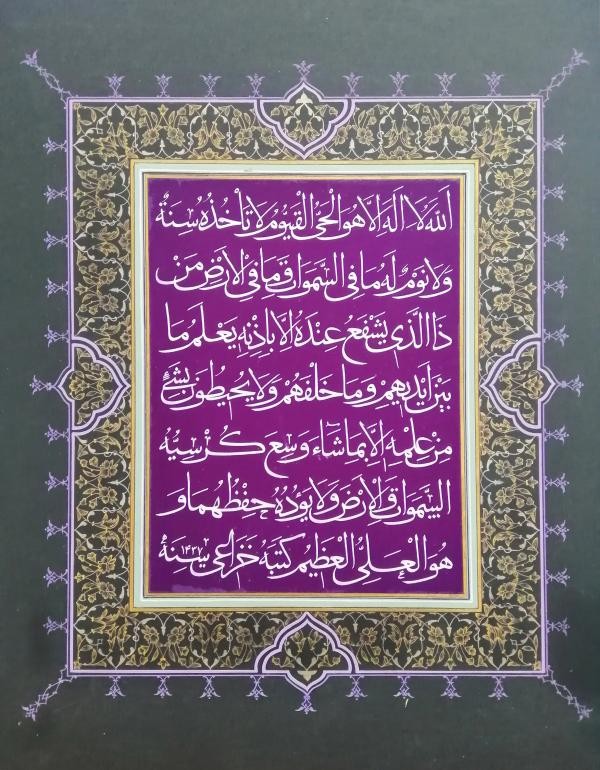 اَللهُ لَا اِلَهَ اِلَّا هُوَ الْحَيُّ الْقَيُّومُ لَا تَأْخُذُهُ سِنَةٌ
وَلَا نَوْمٌ لَهُ مَا فِي السَّمَوَاتِ وَمَا فِي الْاَرْضِ مَنْ
ذَا الَّذِي يَشْفَعُ عِنْدَهُ اِلَّا بِاِذْنِهِ يَعْلَمُ مَا
بَيْنَ اَيْدِيهِمْ وَمَا خَلْفَهُمْ وَلَا يُحِيطُونَ بِشَيْءٍ
مِنْ عِلْمِهِ اِلَّا بِمَا شَاءَ وَسِعَ كُرْسِيُّهُ
السَّمَوَاتِ وَالْاَرْضَ وَلَا يَؤُدُهُ حِفْظُهُمَا وَ
هُوَ الْعَلِيُّ الْعَظِيمُ كَتَبَهُ خزاعی سَنَةَ ١٤٣٧